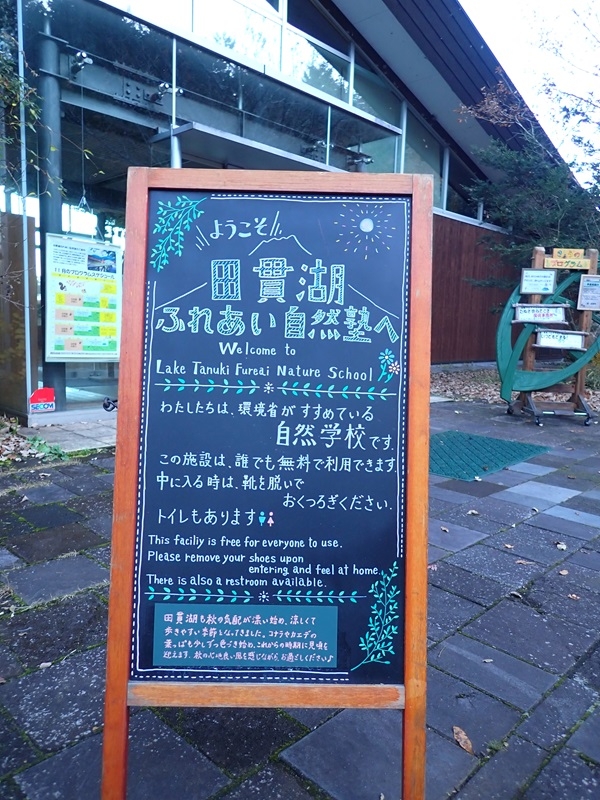 ようこそ
田貫湖
ふれあい自然塾へ
Welcome to
Lake Tanuki Fureai Nature School
わたしたちは、環境省がすすめている
自然学校です。
この施設は、誰でも無料で利用できます
中に入る時は、靴を脱いで
おくつろぎください.
トイレもあります
This faciliy is free for everyone to use.
Please remove your shoes upon
entering and feel at home.
There is also a restroom available.
田貫湖も秋の気配が濃い始め、涼しくて
歩きやすい季節となってきました。コナラやカエデの
葉っぱも少しずつ色づき始め、これからの時期に見頃を
迎えます。秋の心地良い風を感じながら、お過ごしください♪
11月のプログラムスケジュール
SECOM
プログラム